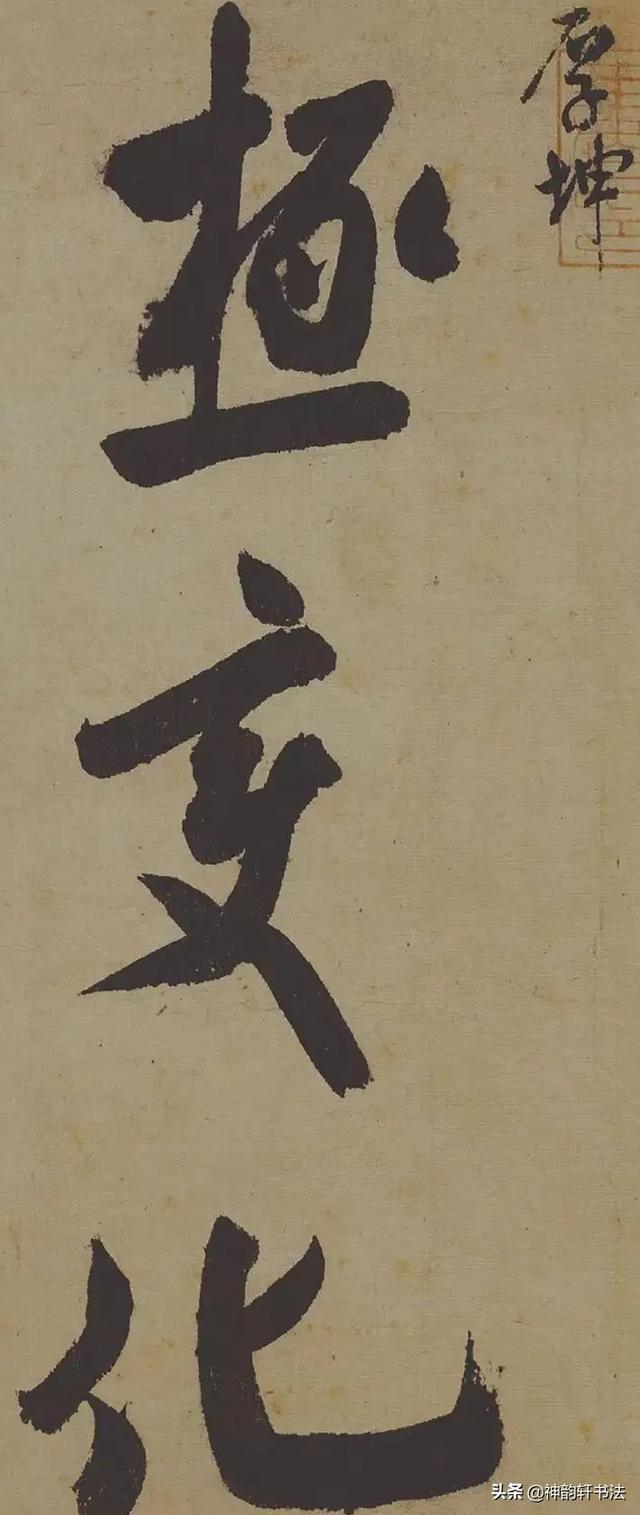 厚坤
極變化
头条 @神韵轩书法